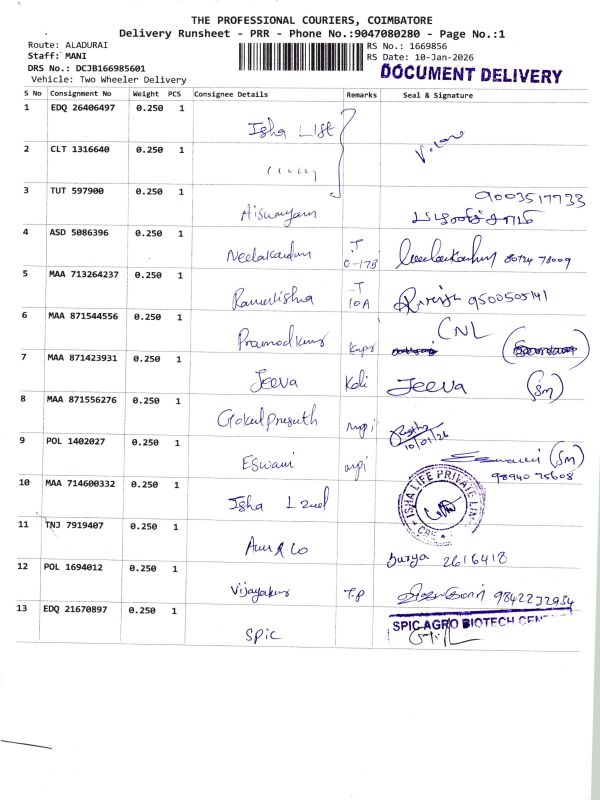 THE PROFESSIONAL COURIERS, COIMBATORE
Delivery Runsheet - PRR - Phone No.:9047080280 - Page No.:1
Route: ALADURAI
Staff: MANI
DRS No.: DCJB166985601
Vehicle: Two Wheeler Delivery
RS No.: 1669856
RS Date: 10-Jan-2026
DOCUMENT DELIVERY
S No Consignment No Weight PCS Consignee Details Remarks Seal & Signature
1 EDQ 26406497 0.250 1 Isha
2 CLT 1316640 0.250 1 " " " "
3 TUT 597900 0.250 1 9003517733
4 ASD 5086396 0.250 1 Neelakandan T 0-17B
5 MAA 713264237 0.250 1 Ramakrishna T 10A 9500505141
6 MAA 871544556 0.250 1 Pramodkumar CNL
7 MAA 871423931 0.250 1 Jeeva Kali Jeeva (SM)
8 MAA 871556276 0.250 1 Gokulprasath 10/01/26
9 POL 1402027 0.250 1 Eswari (SM)
98940 75608
10 MAA 714600332 0.250 1 Isha ISHA LIFE PRIVATE
11 TNJ 7919407 0.250 1 Surya 2616418
12 POL 1694012 0.250 1 Vijayakumar T.P 9842232934
13 EDQ 21670897 0.250 1 SPIC SPIC AGRO BIOTECH